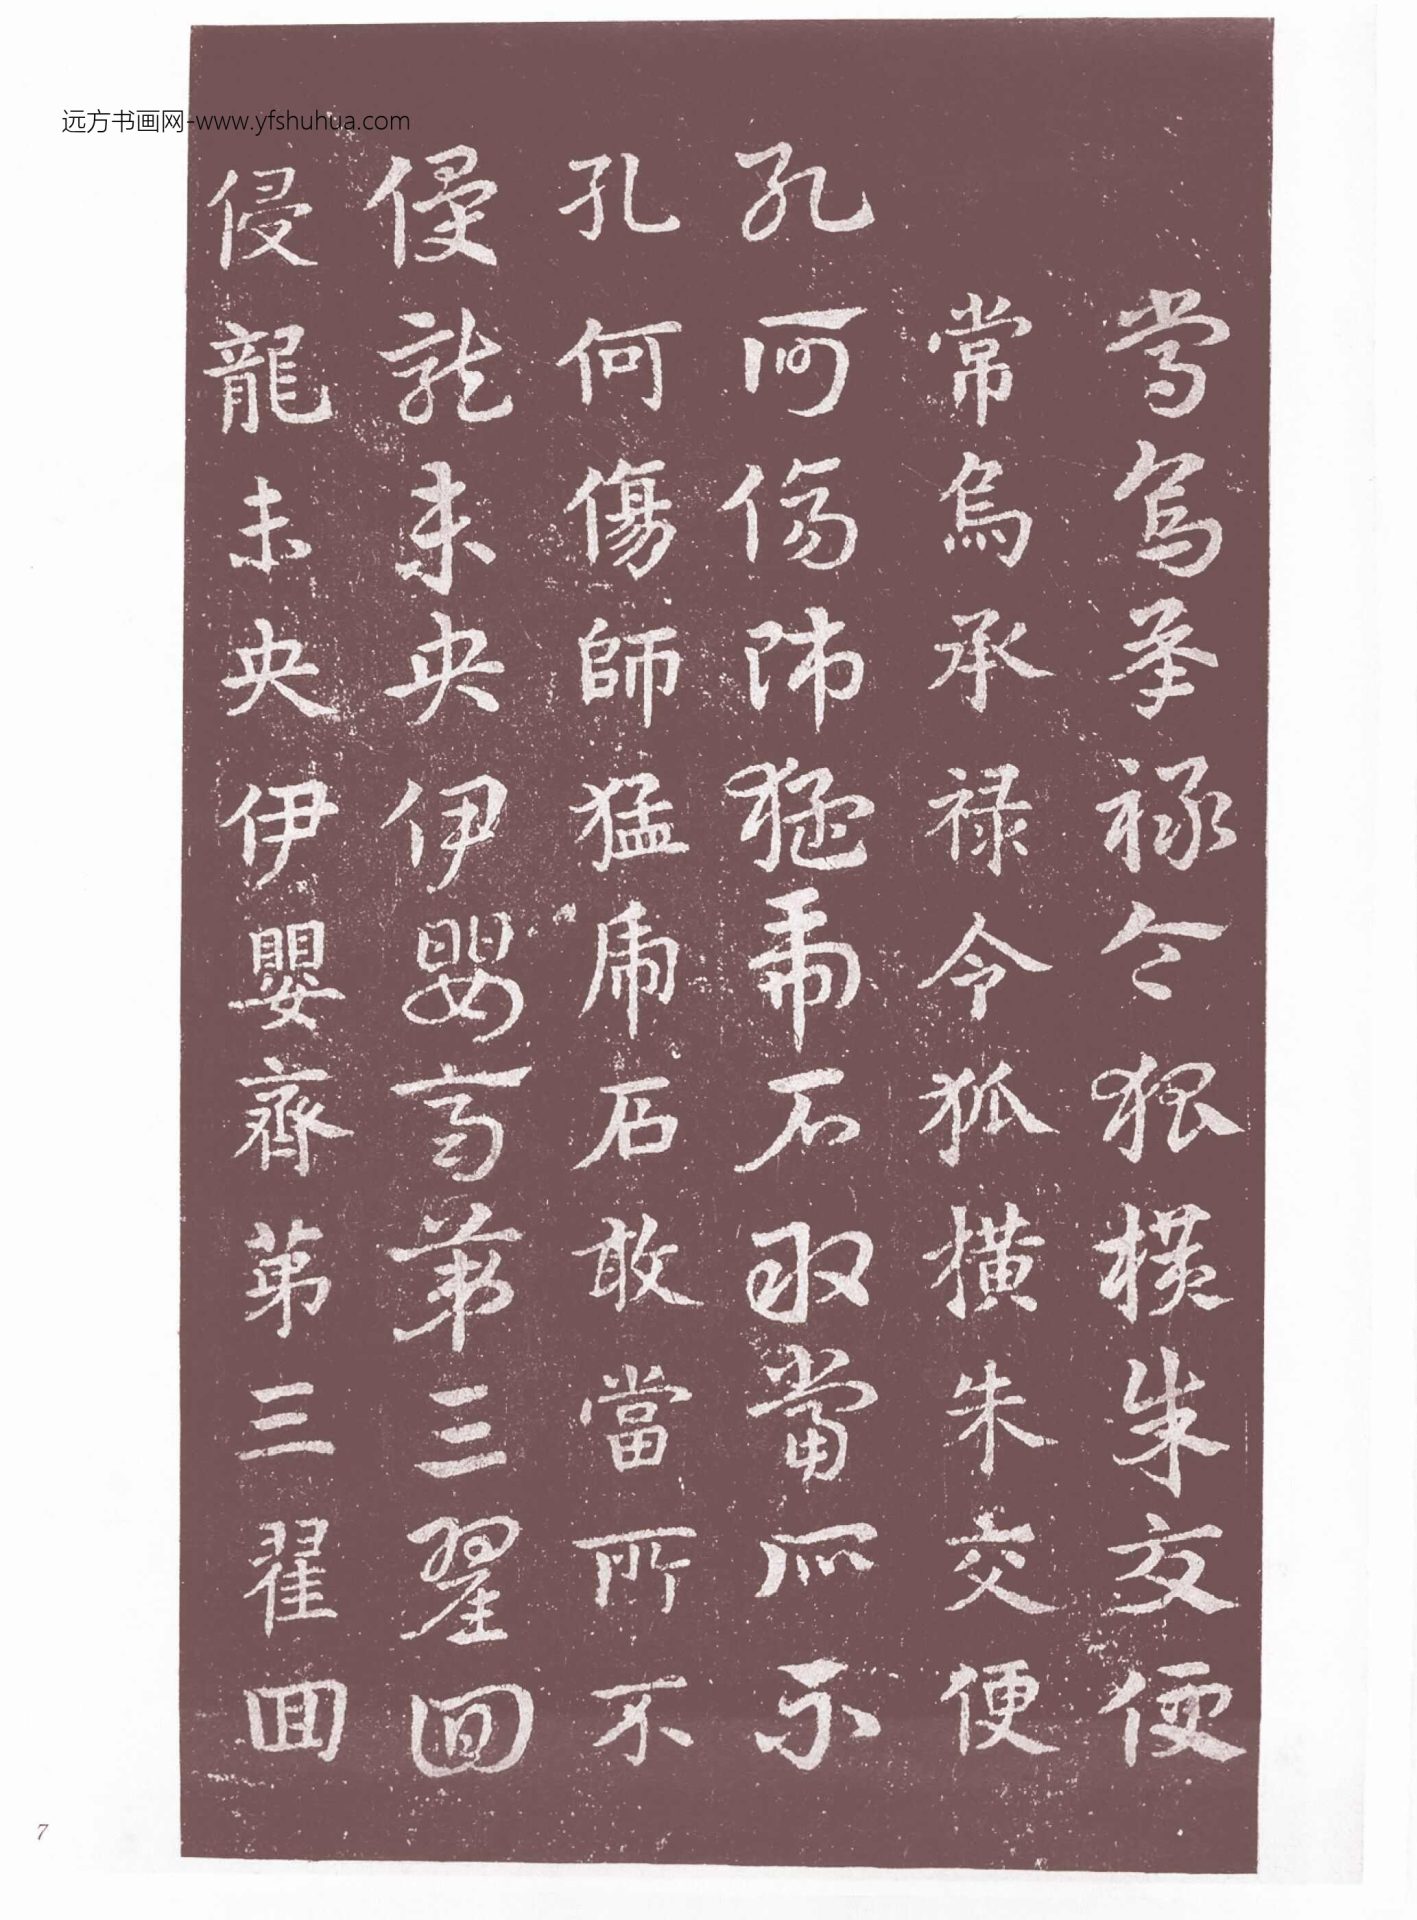 远方书画网-www.yfshuhua.com
常烏承禄令狐橫朱交便
常烏承禄令狐横朱交便
孔何傷師猛虎石敢當所不
孔何傷師猛虎石敢當所不
侵龍未央伊嬰齊第三翟回
侵龍未央伊嬰齊苐三翟囬
7